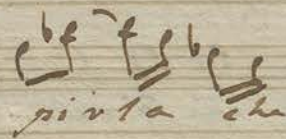 pivta che